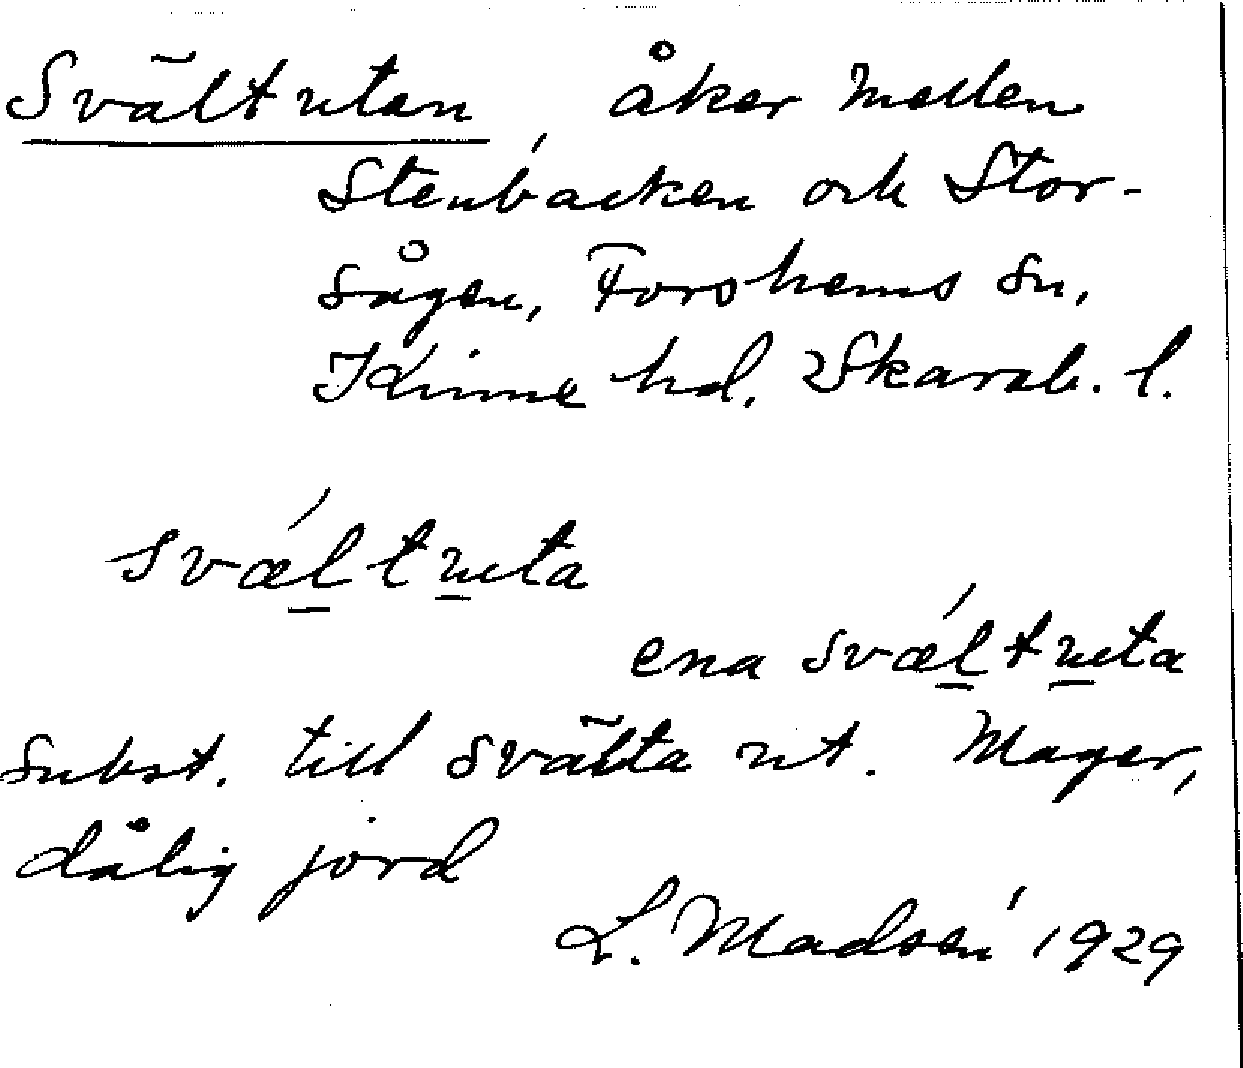 Svältutan, åker mellan
Stenbacken och Stor-
sågen, Forshems sn,
Kinne hd, Skarab. l.
svǽltuta
ena svǽltuta
Subst. till svälta ut. Mager,
dålig jord
L. Madsén 1929